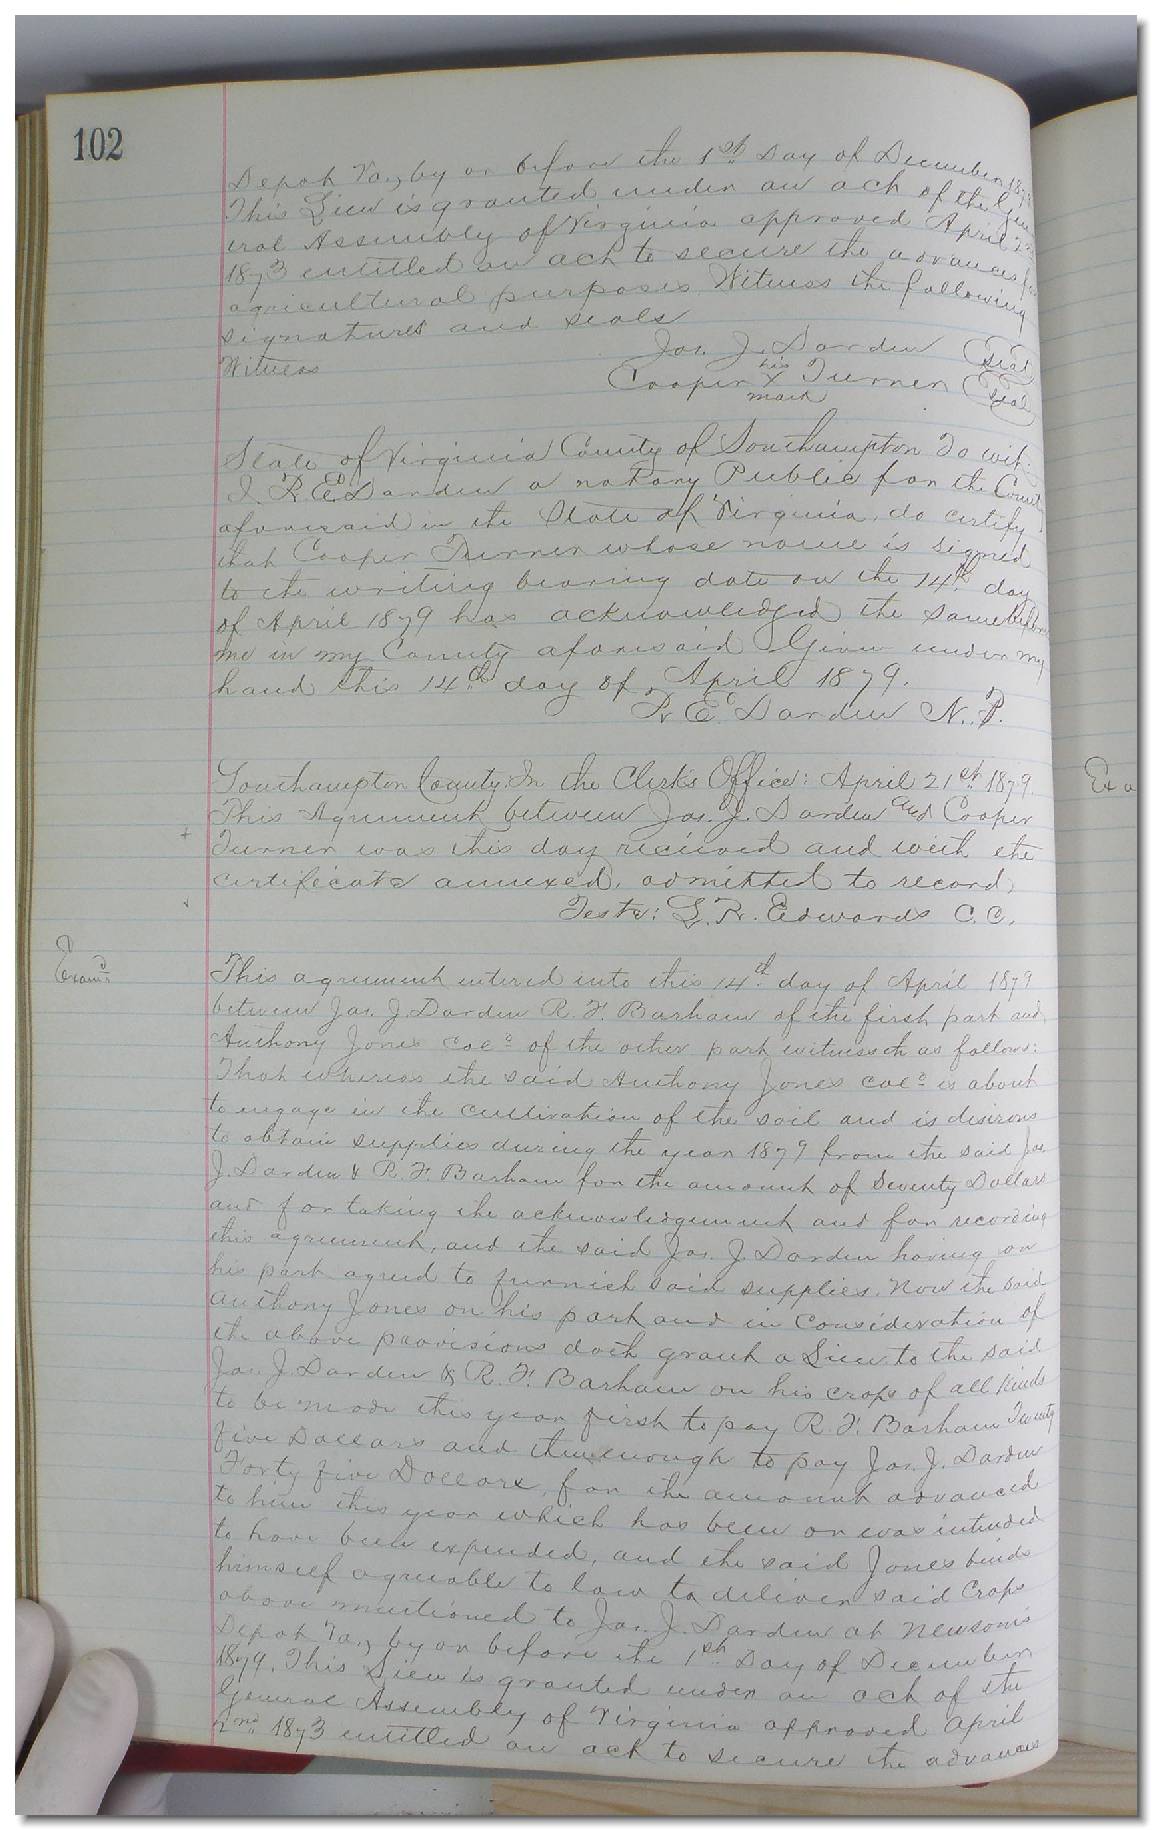 102
Depot Va, by or before the 1st Day of December 187
This Lien is granted under an act of the Gen
eral Assembly of Virginia approved April 2nd
1873 entitled an act to secure the advances for
agricultural purposes Witness the following
signatures and seals
Jas. J. Darden Seal
Witness
his
Cooper X Turner Seal
mark
State of Virginia County of Southampton To wit:
I R. E. Darden a notary Public for the County
aforesaid in the State of Virginia, do certify
that Cooper Turner whose name is signed
to the writing bearing date on the 14th day
of April 1879 has acknowledged the same before
me in my County aforesaid Given under my
hand this 14th day of April 1879.
R. E. Darden N. P.
Southampton County: In the Clerk's Office: April 21st 1879.
This Agreement between Jas. J. Darden and Cooper
Turner was this day received and with the
certificate annexed, admitted to record.
Teste: L. R. Edwards C. C.
Examd
This agreement entered into this 14th day of April 1879
between Jas. J. Darden R. F. Barham of the first part and
Anthony Jones Cold of the other part witnesseth as follows:
That whereas the said Anthony Jones Cold is about
to engage in the cultivation of the soil and is desirous
to obtain supplies during the year 1879 from the said Jas
J. Darden & R. F. Barham for the amount of Seventy Dollars
and for taking the acknowledgement and for recording
this agreement, and the said Jas. J. Darden having on
his part agreed to furnish said supplies. Now the said
Anthony Jones on his part and in consideration of
the above provisions doth grant a Lien to the said
Jas. J. Darden & R. F. Barham on his crops of all kinds
to be made this year first to pay R. F. Barham Twenty
five Dollars and then enough to pay Jas. J. Darden
Forty five Dollars, for the amount advanced
to him this year which has been or was intended
to have been expended, and the said Jones binds
himself agreeable to law to deliver said crops
above mentioned to Jas. J. Darden at Newsoms
Depot Va, by or before the 1st Day of December
1879. This Lien is granted under an act of the
General Assembly of Virginia approved April
2nd 1873 entitled an act to secure the advances
Exa